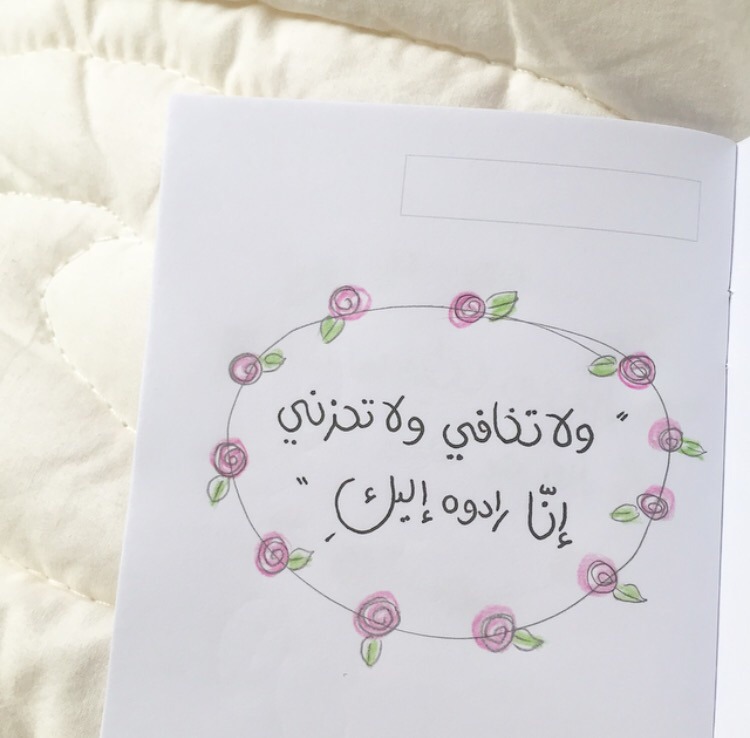 " ولا تخافي ولا تحزني
إنّا رادوه إليكِ "